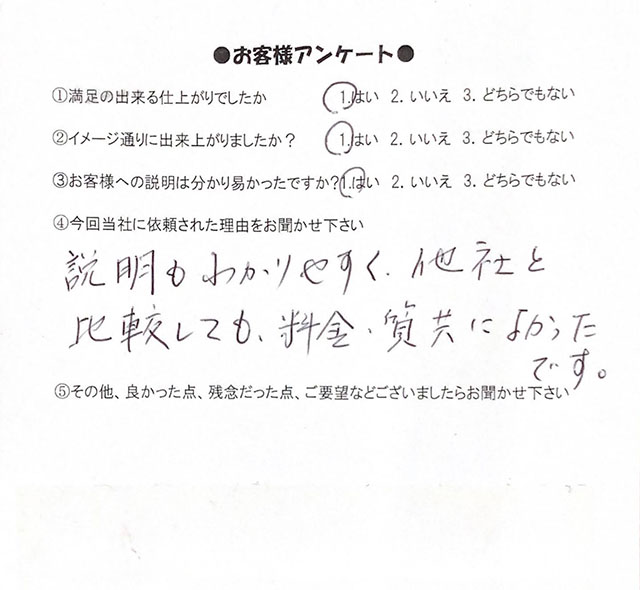 ●お客様アンケート●
①満足の出来る仕上がりでしたか 1.はい 2.いいえ 3.どちらでもない
②イメージ通りに出来上がりましたか？ 1.はい 2.いいえ 3.どちらでもない
③お客様への説明は分かり易かったですか？ 1.はい 2.いいえ 3.どちらでもない
④今回当社に依頼された理由をお聞かせ下さい
説明もわかりやすく、他社と
比較しても、料金、質共によかった
です。
⑤その他、良かった点、残念だった点、ご要望などございましたらお聞かせ下さい